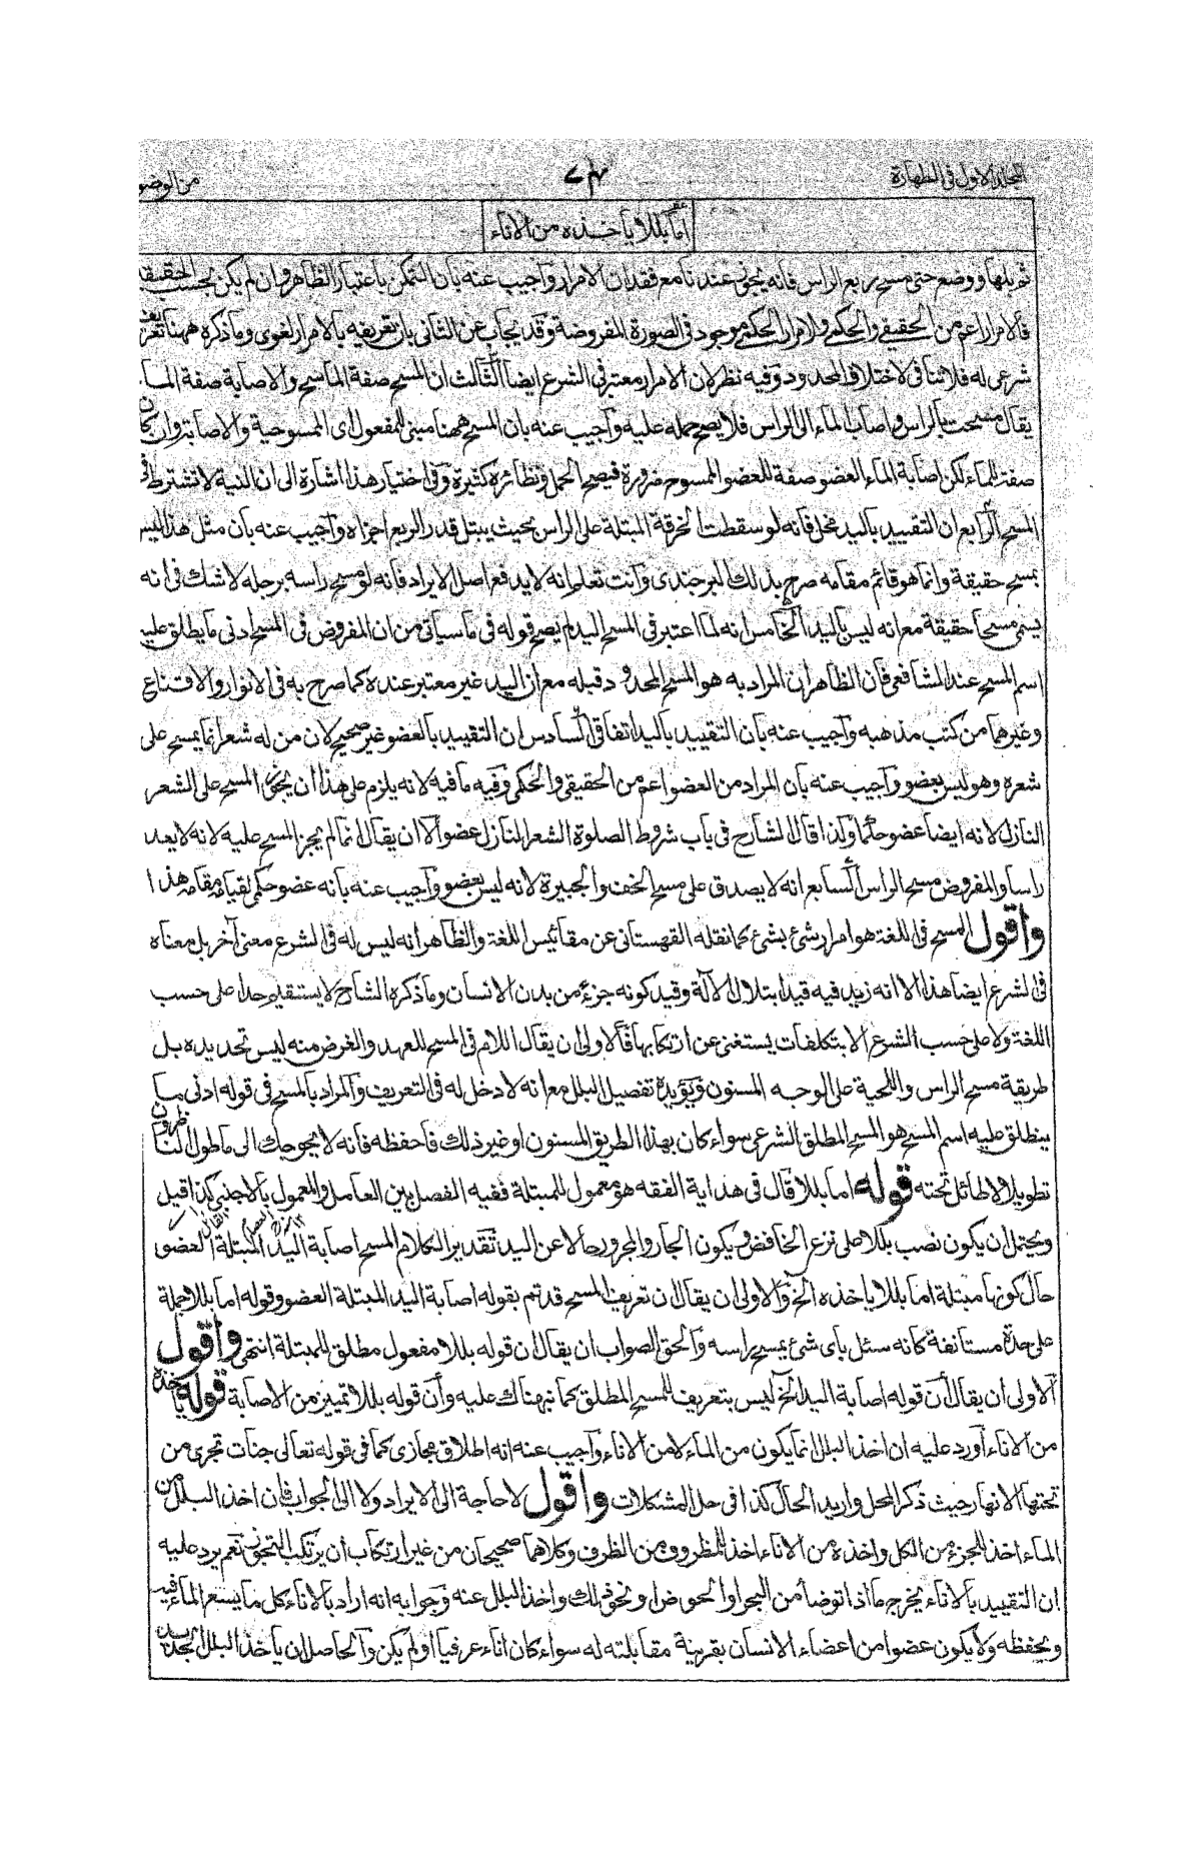 المجلد الاول فى الطهارة
من الوضو
اما بللا يأخذه من الاناء
ثم بلها ووضع حتى مسح ربع الراس فانه يجوز عندنا مع فقدان الامرار وآجيب عنه بان التمكن باعتبار الظاهر وان لم يكن بحسب الحقيقة
فالامرار اعم من الحقيقى والحكمى والامرار الحكمى موجود فى الصورة المفروضة وقد يجاب عن الثانى بان تعريفه بالامرار لغوى وما ذكره ههنا تعريف
شرعى له فلا تنافى لاختلاف المحدود وفيه نظر لان الامرار معتبر فى الشرع ايضا الثالث ان المسح صفة الماسح والاصابة صفة الماء
يقال مسحت بالراس واصاب الماء الى الراس فلا يصح حمله عليه وآجيب عنه بان المسح ههنا مبنى للمفعول اى الممسوحية والاصابة وان كان
صفة للماء لكن اصابة الماء العضو صفة للعضو الممسوح ضرورة فيصح الحمل ونظائره كثيرة وفى اختيار هذا اشارة الى ان النية لا تشترط فى
المسح الرابع ان التقييد باليد مخل فانه لو سقطت الخرقة المبتلة على الراس بحيث يبتل قدر الربع اجزاه وآجيب عنه بان مثل هذا ليس
بمسح حقيقة وانما هو قائم مقامه صرح بذلك البرجندى وانت تعلم انه لا يدفع اصل الايراد فانه لو مسح راسه برجله لا شك فى انه
يسمى مسحا حقيقة مع انه ليس باليد الخامس انه لما اعتبر فى المسح اليد لم يصح قوله فى ما سياتى من ان المفروض فى المسح ادنى ما يطلق عليه
اسم المسح عند الشافعى فان الظاهر ان المراد به هو المسح المحدود قبله مع ان اليد غير معتبر عنده كما صرح به فى الانوار والاقناع
وغيرهما من كتب مذهبه وآجيب عنه بان التقييد باليد اتفاقى السادس ان التقييد بالعضو غير صحيح لان من له شعر انما يمسح على
شعره وهو ليس بعضو وآجيب عنه بان المراد من العضو اعم من الحقيقى والحكمى وفيه ما فيه لانه يلزم على هذا ان يجوز المسح على الشعر
النازل لانه ايضا عضو حكما ولذا قال الشارح فى باب شروط الصلوة الشعر النازل عضو الا ان يقال انما لم يجز المسح عليه لانه لا يعد
راسا والمفروض مسح الراس السابع انه لا يصدق على مسح الخف والجبيرة لانه ليس بعضو وآجيب عنه بانه عضو حكمى لقيامه مقامه هذا
واقول المسح فى اللغة هو امرار شئ بشئ كما نقله القهستانى عن مقائيس اللغة والظاهر انه ليس له فى الشرع معنى آخر بل معناه
فى الشرع ايضا هذا الا انه زيد فيه قيد ابتلال الآلة وقيد كونه جزء من بدن الانسان وما ذكره الشارح لا يستقيم حدا على حسب
اللغة ولا على حسب الشرع الا بتكلفات يستغنى عن ارتكابها فالاولى ان يقال اللام فى المسح للعهد والغرض منه ليس تحديده بل
طريقة مسح الراس واللحية على الوجه المسنون ويؤيده تفصيل البلل مع انه لا دخل له فى التعريف والمراد بالمسح فى قوله ادنى ما
ينطلق عليه اسم المسح هو المسح المطلق الشرعى سواء كان بهذا الطريق المسنون او غير ذلك فاحفظه فانه لا يحوجك الى ما طول الناظرون
تطويلا لا طائل تحته قوله اما بللا قال فى هداية الفقه هو معمول للمبتلة ففيه الفصل بين العامل والمعمول بالاجنبى كذا قيل
ويحتمل ان يكون نصب بللا على نزع الخافض ويكون الجار والمجرور حالا عن اليد تقدير الكلام المسح اصابة اليد المبتلة العضو
حال كونها مبتلة اما بللا ياخذه الخ والاولى ان يقال ان تعريف المسح قد تم بقوله اصابة اليد المبتلة العضو وقوله اما بللا جملة
على حدة مستانفة كانه سئل باى شئ يمسح راسه والحق الصواب ان يقال ان قوله بللا مفعول مطلق للمبتلة انتهى واقول
الاولى ان يقال ان قوله اصابة اليد الخ ليس بتعريف للمسح المطلق كما نبهناك عليه وان قوله بللا تمييز من الاصابة قوله ياخذه
من الاناء اورد عليه ان اخذ البلل انما يكون من الماء لا من الاناء وآجيب عنه انه اطلاق مجازى كما فى قوله تعالى جنات تجرى من
تحتها الانهار حيث ذكر المحل واريد الحال كذا فى حل المشكلات واقول لا حاجة الى الايراد ولا الى الجواب فان اخذ البلل من
الماء اخذ للجزء من الكل واخذه من الاناء اخذ للمظروف من الظرف وكلاهما صحيحان من غير ارتكاب ان يرتكب التجوز نعم يرد عليه
ان التقييد بالاناء يخرج ما اذا توضأ من البحر او الحوض او نحو ذلك واخذ البلل عنه وجوابه انه اراد بالاناء كل ما يسع الماء فيه
ويحفظه ولا يكون عضوا من اعضاء الانسان بقرينة مقابلته له سواء كان اناء عرفيا او لم يكن والحاصل ان ياخذ البلل الجديد